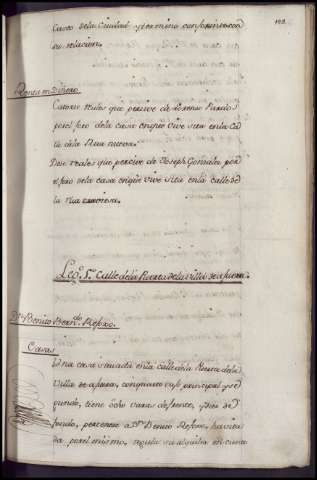 casco de la Ciudad y termino conforme con
su relacion.
Renta en Dinero
Catorce reales que percive de Lorenzo Pardo
por el foro de la casa en que vive sita en la Ca
de la Rua nueva.
Doze reales que percive de Joseph Gonzalez por
el foro de la casa en que vive sita en la calle de
la rua
Leg.º 5.º Calle de la Puerta de la Villa de afuera.
Dn. Benito Bern.do Refoxo.
Casas
Una casa situada en la calle de la Puerta de la
Villa de afuera, con quarto vajo principal y se
gundo, tiene ocho varas de frente, y diez de
fondo, pertenece a Dn. Benito Refoxo, havita
da por el mismo, regula su alquiler en cien